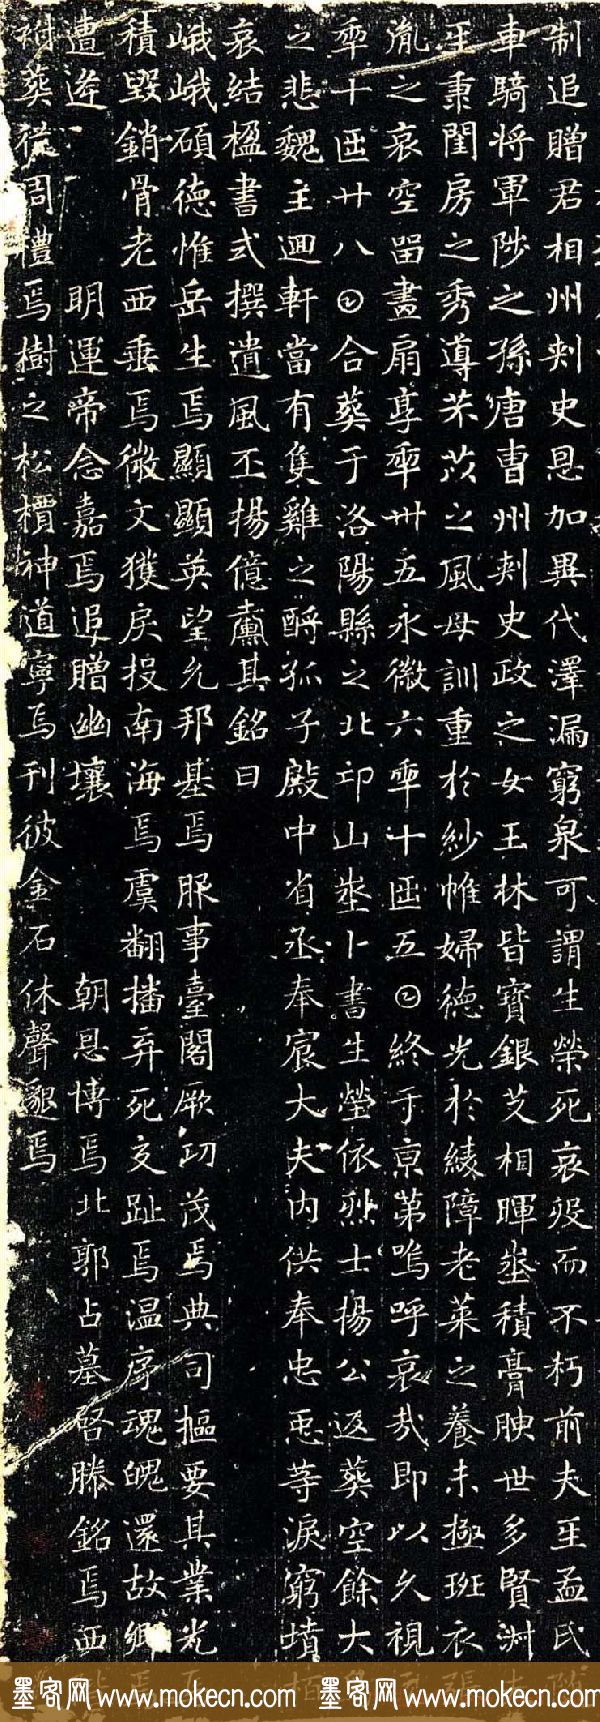 制追贈君相州刺史恩加異代澤漏窮泉可謂生榮死哀歿而不朽前夫𤯔孟氏隋
車騎將軍陟之孫唐曹州刺史政之女玉林皆寶銀艾相暉埊積膏腴世多賢淑
𤯔秉閨房之秀導芣苡之風母訓重於紗帷婦德光於綾障老萊之養未極班衣張
胤之哀空留畫扇享𠡦卌五永徽六𠡦十𠥱五𡆠終于京第嗚呼哀哉即以久視元
𠡦十𠥱廿八𡆠合葬于洛陽縣之北邙山埊卜書生塋依烈士楊公返葬空餘大
之悲魏主迴軒當有隻雞之酹孤子殿中省丞奉宸大夫內供奉忠𢘑等淚窮墳柏
哀結楹書式撰遺風丕揚億薰其銘曰
峨峨碩德惟岳生焉顯顯英望允邦基焉服事臺閣厥功茂焉典司樞要其業光焉
積毀銷骨老西垂焉微文獲戾投南海焉虞翻播弃死交趾焉温序魂魄還故鄉焉
遭逢 明運帝念嘉焉追贈幽壤 朝恩博焉北郭占墓啓滕銘焉西
祔葬從周禮焉樹之松檟神道寧焉刊彼金石休聲邈焉
墨客网 www.mokecn.com 墨客网 www.mokecn.com 墨客网 www.mokecn.com